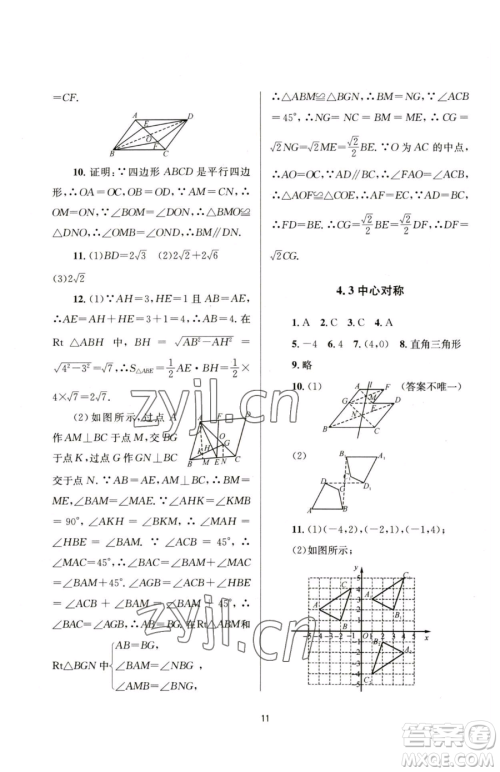 =CF.
A
D
E
O
F
B
C
10. 证明：∵四边形 ABCD 是平行四边
形，∴OA＝OC，OB＝OD. ∵AM＝CN，∴
OM＝ON. ∵∠BOM＝∠DON，∴△OMB≌
△DNO，∴∠OMB＝∠OND，∴BM∥DN.
11. (1)BD＝2√3　(2)2√2＋2√6
(3)2√2
12. (1)∵AH＝3，HE＝1 且 AB＝AE，
∴AB＝AE＝AH＋HE＝3＋1＝4，∴在
Rt △ABH 中，BH＝√(AB²－AH²)＝
√(4²－3²)＝√7，∴S△ABE＝1/2 AE×BH＝1/2
×4×√7＝2√7.
(2)如图所示，过点 A
作AM⊥BC于点M，交BG
于点K，过点G作GN⊥BC
于点N. ∵AB＝AE，∴BM
＝ME，∠BAM＝∠MAE. ∵∠AHK＝∠KMB
＝90°，∠AKH＝∠BKM，∴∠MAE＝
∠HBE＝∠BAM. ∵∠ACB＝45°，∴
∠MAC＝45°，∴∠BAG＝∠MAC＋∠BAM＝
∠BAM＋45°，∠AGB＝∠ACB＋∠HBE＝
∠ACB＋∠BAM＝∠BAM＋45°，∴
∠BAG＝∠AGB，∴AB＝BG. 在Rt△ABM和
Rt△BGN中
AB＝BG，
∠BAM＝∠NBG，
∠AMB＝∠BNG，
∴△ABM≌△BGN，∴BM＝GN. ∵∠ACB
＝45°，∴NG＝NC＝BM＝ME，∴CG＝
√2NG＝√2ME＝√2/2BE. ∵O为AC的中点，
∴AO＝OC. ∵AD∥BC，∴∠FAO＝∠ACB.
∵∠AOF＝∠COE，∴△AOF≌△COE，∴AF
＝CE，∴FD＝BE，∴CG＝√2/2BE＝√2/2FD，
∴FD＝√2CG.
4.3 中心对称
1. A　2. C　3. C　4. A
5. －4　6. 4　7. (4,0)　8. 直角三角形
9. 略
10. (1)
(答案不唯一)
(2)
11. (1)(－4,2)，(－2,1)，(－1,4)；
(2)如图所示；
zyjl.cn
11